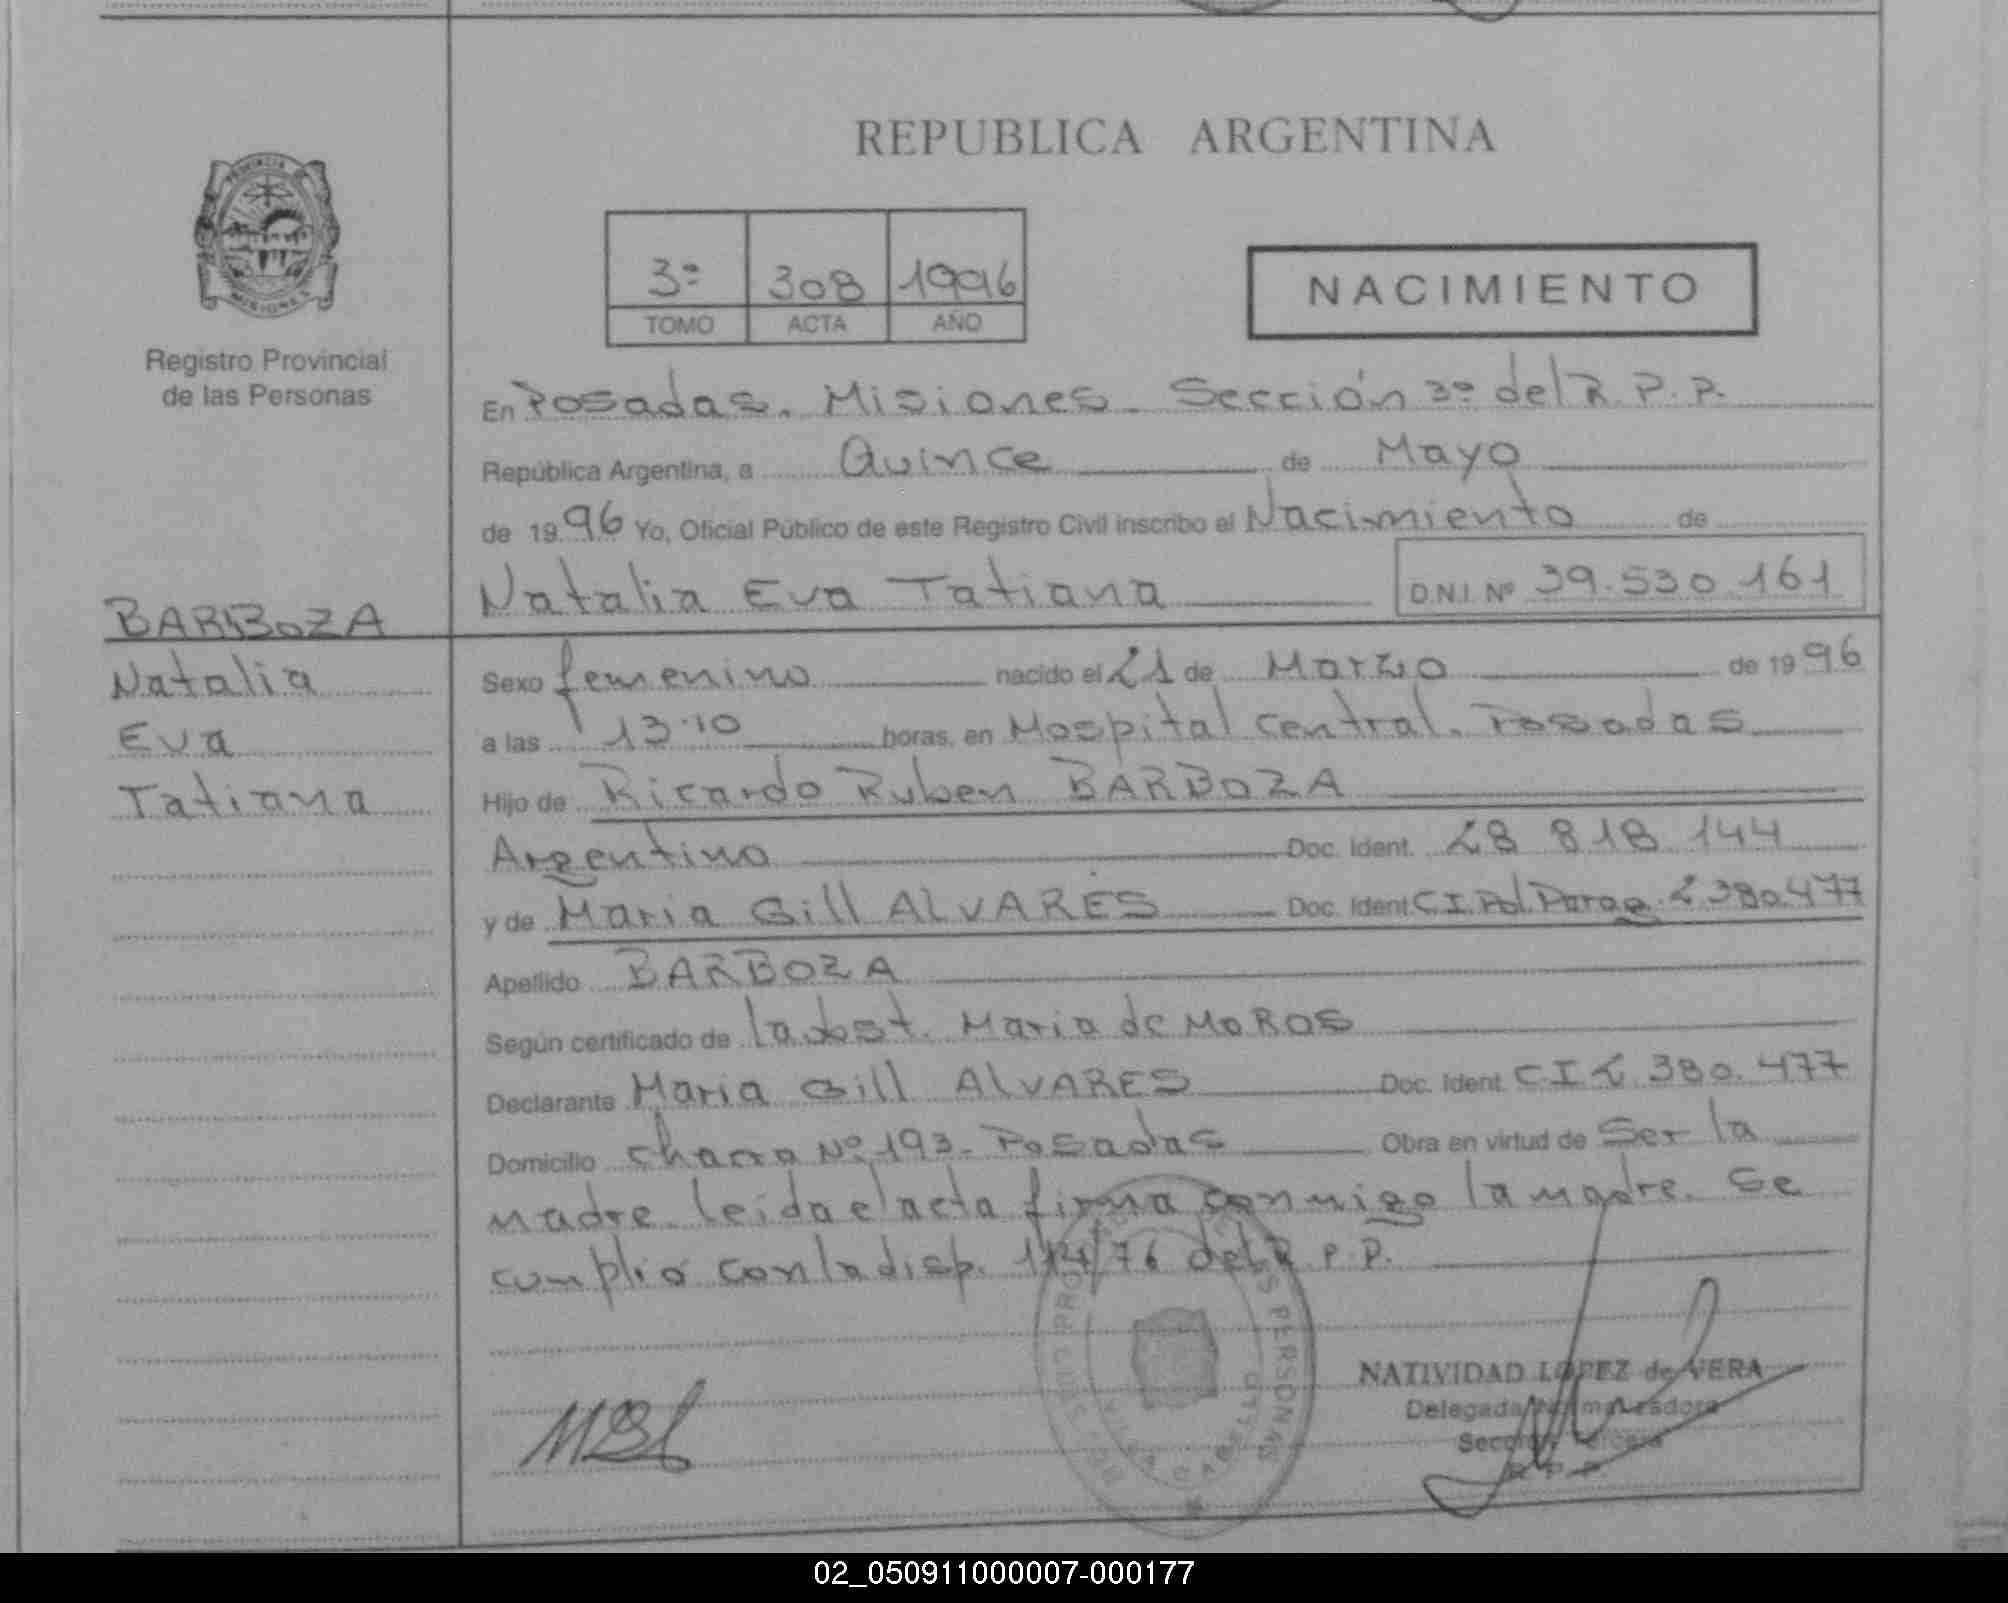 REPUBLICA ARGENTINA
PROVINCIA DE
MISIONES
Registro Provincial
de las Personas
3º 308 1996
TOMO ACTA AÑO
NACIMIENTO
En Posadas. Misiones. Sección 3º del R.P.P.
República Argentina, a Quince de Mayo
de 1996 Yo, Oficial Público de este Registro Civil inscribo el Nacimiento de
Natalia Eva Tatiana D.N.I. Nº 39.530.161
BARBOZA
Natalia
Eva
Tatiana
Sexo femenino nacido el 21 de Marzo de 1996
a las 13.10 horas, en Hospital Central. Posadas
Hijo de Ricardo Ruben BARBOZA
Argentino Doc. Ident. 28 818 144
y de Maria Gill ALVARES Doc. Ident. C.I. Pol. Parag. 2.380.477
Apellido BARBOZA
Según certificado de la obst. Maria de MOROS
Declarante Maria Gill ALVARES Doc. Ident. CI 2.380.477
Domicilio Chacra Nº 193. Posadas Obra en virtud de Ser la
madre. leida el acta firma conmigo la madre. Se
cumplió con la disp. 114/76 del R.P.P.
NATIVIDAD LOPEZ de VERA
Delegada Normalizadora
Sección Tercera
R. P. P.
VILLA CABELLO
02_050911000007-000177